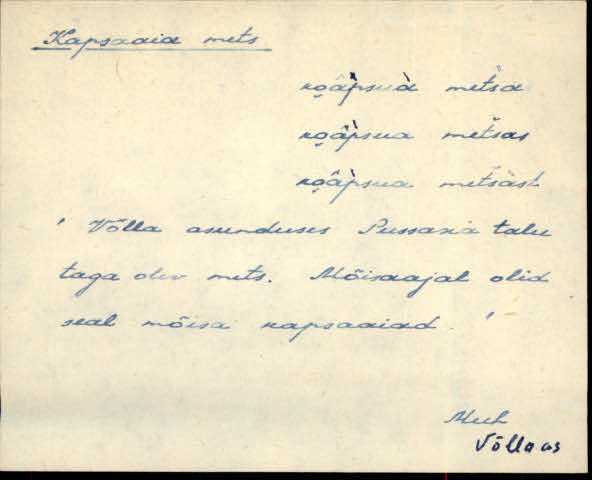 Kapsaaia mets
metsa
metsas
metsäst
' Võlla asunduses Pussaxia talu
taga olev mets. Mõisaajal olid
seal mõisa kapsaaiad. '
Muh
Võlla as